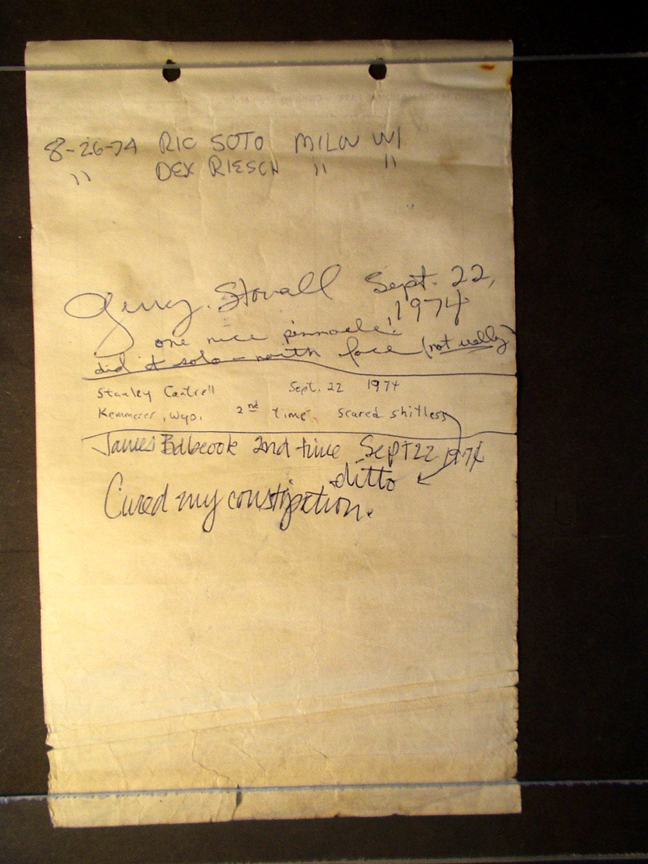 8-26-74 RIC SOTO MILW WI
" DEX RIESCH " "
Gerry Stovall Sept. 22,
1974
one nice pinnacle!
did it solo - north face (not really)
Stanley Cantrell Sept. 22 1974
Kemmerer, Wyo. 2nd time scared shitless
James Babcock 2nd time Sept 22 1974
ditto
Cured my constipation.